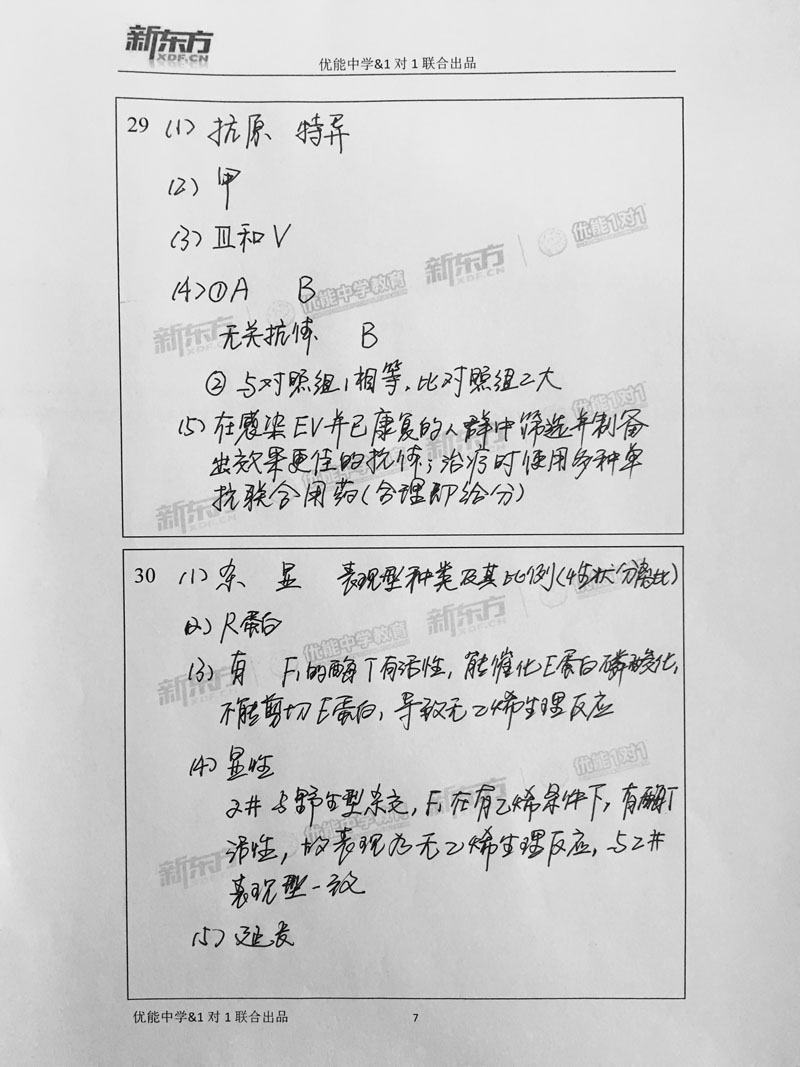 新东方
XDF.CN
优能中学&1 对 1 联合出品
29 (1) 抗原 特异
(2) 甲
(3) Ⅲ和Ⅴ
(4) ①A B
无关抗体 B
② 与对照组1相等，比对照组2大
(5) 在感染EV并已康复的人群中筛选并制备
出效果更佳的抗体；治疗时使用多种单
抗联合用药（合理即给分）
30 (1) 杂 显 表现型种类及其比例（性状分离比）
(2) R蛋白
(3) 有 F₁的酶T有活性，能催化E蛋白磷酸化，
不能剪切E蛋白，导致无乙烯生理反应
(4) 显性
2#与野生型杂交，F₁在有乙烯条件下，有酶T
活性，故表现为无乙烯生理反应，与2#
表现型一致
(5) 延长
新东方 XDF.CN 优能中学教育 新东方 XDF.CN 优能1对1
新东方 XDF.CN 优能中学教育 新东方 XDF.CN 优能1对1
优能中学&1 对 1 联合出品
7